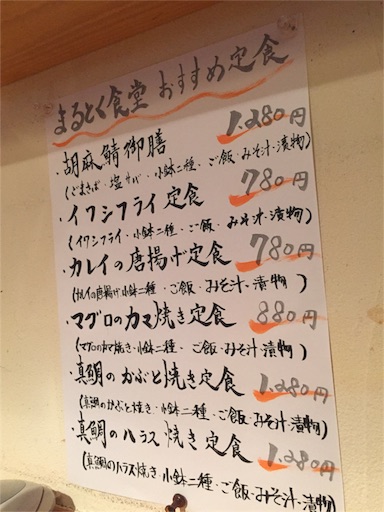 まるとく食堂 おすすめ定食
・胡麻鯖御膳 1,280円
(ごまさば・塩サバ・小鉢二種・ご飯・みそ汁・漬物)
・イワシフライ定食 780円
(イワシフライ・小鉢二種・ご飯・みそ汁・漬物)
・カレイの唐揚げ定食 780円
(カレイの唐揚げ・小鉢二種・ご飯・みそ汁・漬物)
・マグロのカマ焼き定食 880円
(マグロのカマ焼き・小鉢二種・ご飯・みそ汁・漬物)
・真鯛のかぶと焼き定食 1,280円
(真鯛のかぶと焼き・小鉢二種・ご飯・みそ汁・漬物)
・真鯛のハラス焼き定食 1,280円
(真鯛のハラス焼き・小鉢二種・ご飯・みそ汁・漬物)